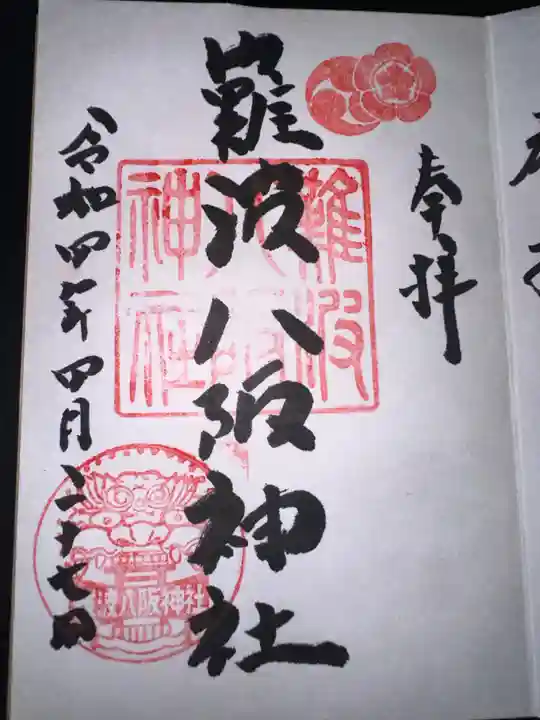 奉拝
難波八阪神社
難波
八阪
神社
令和四年四月二十七日
波八阪神社